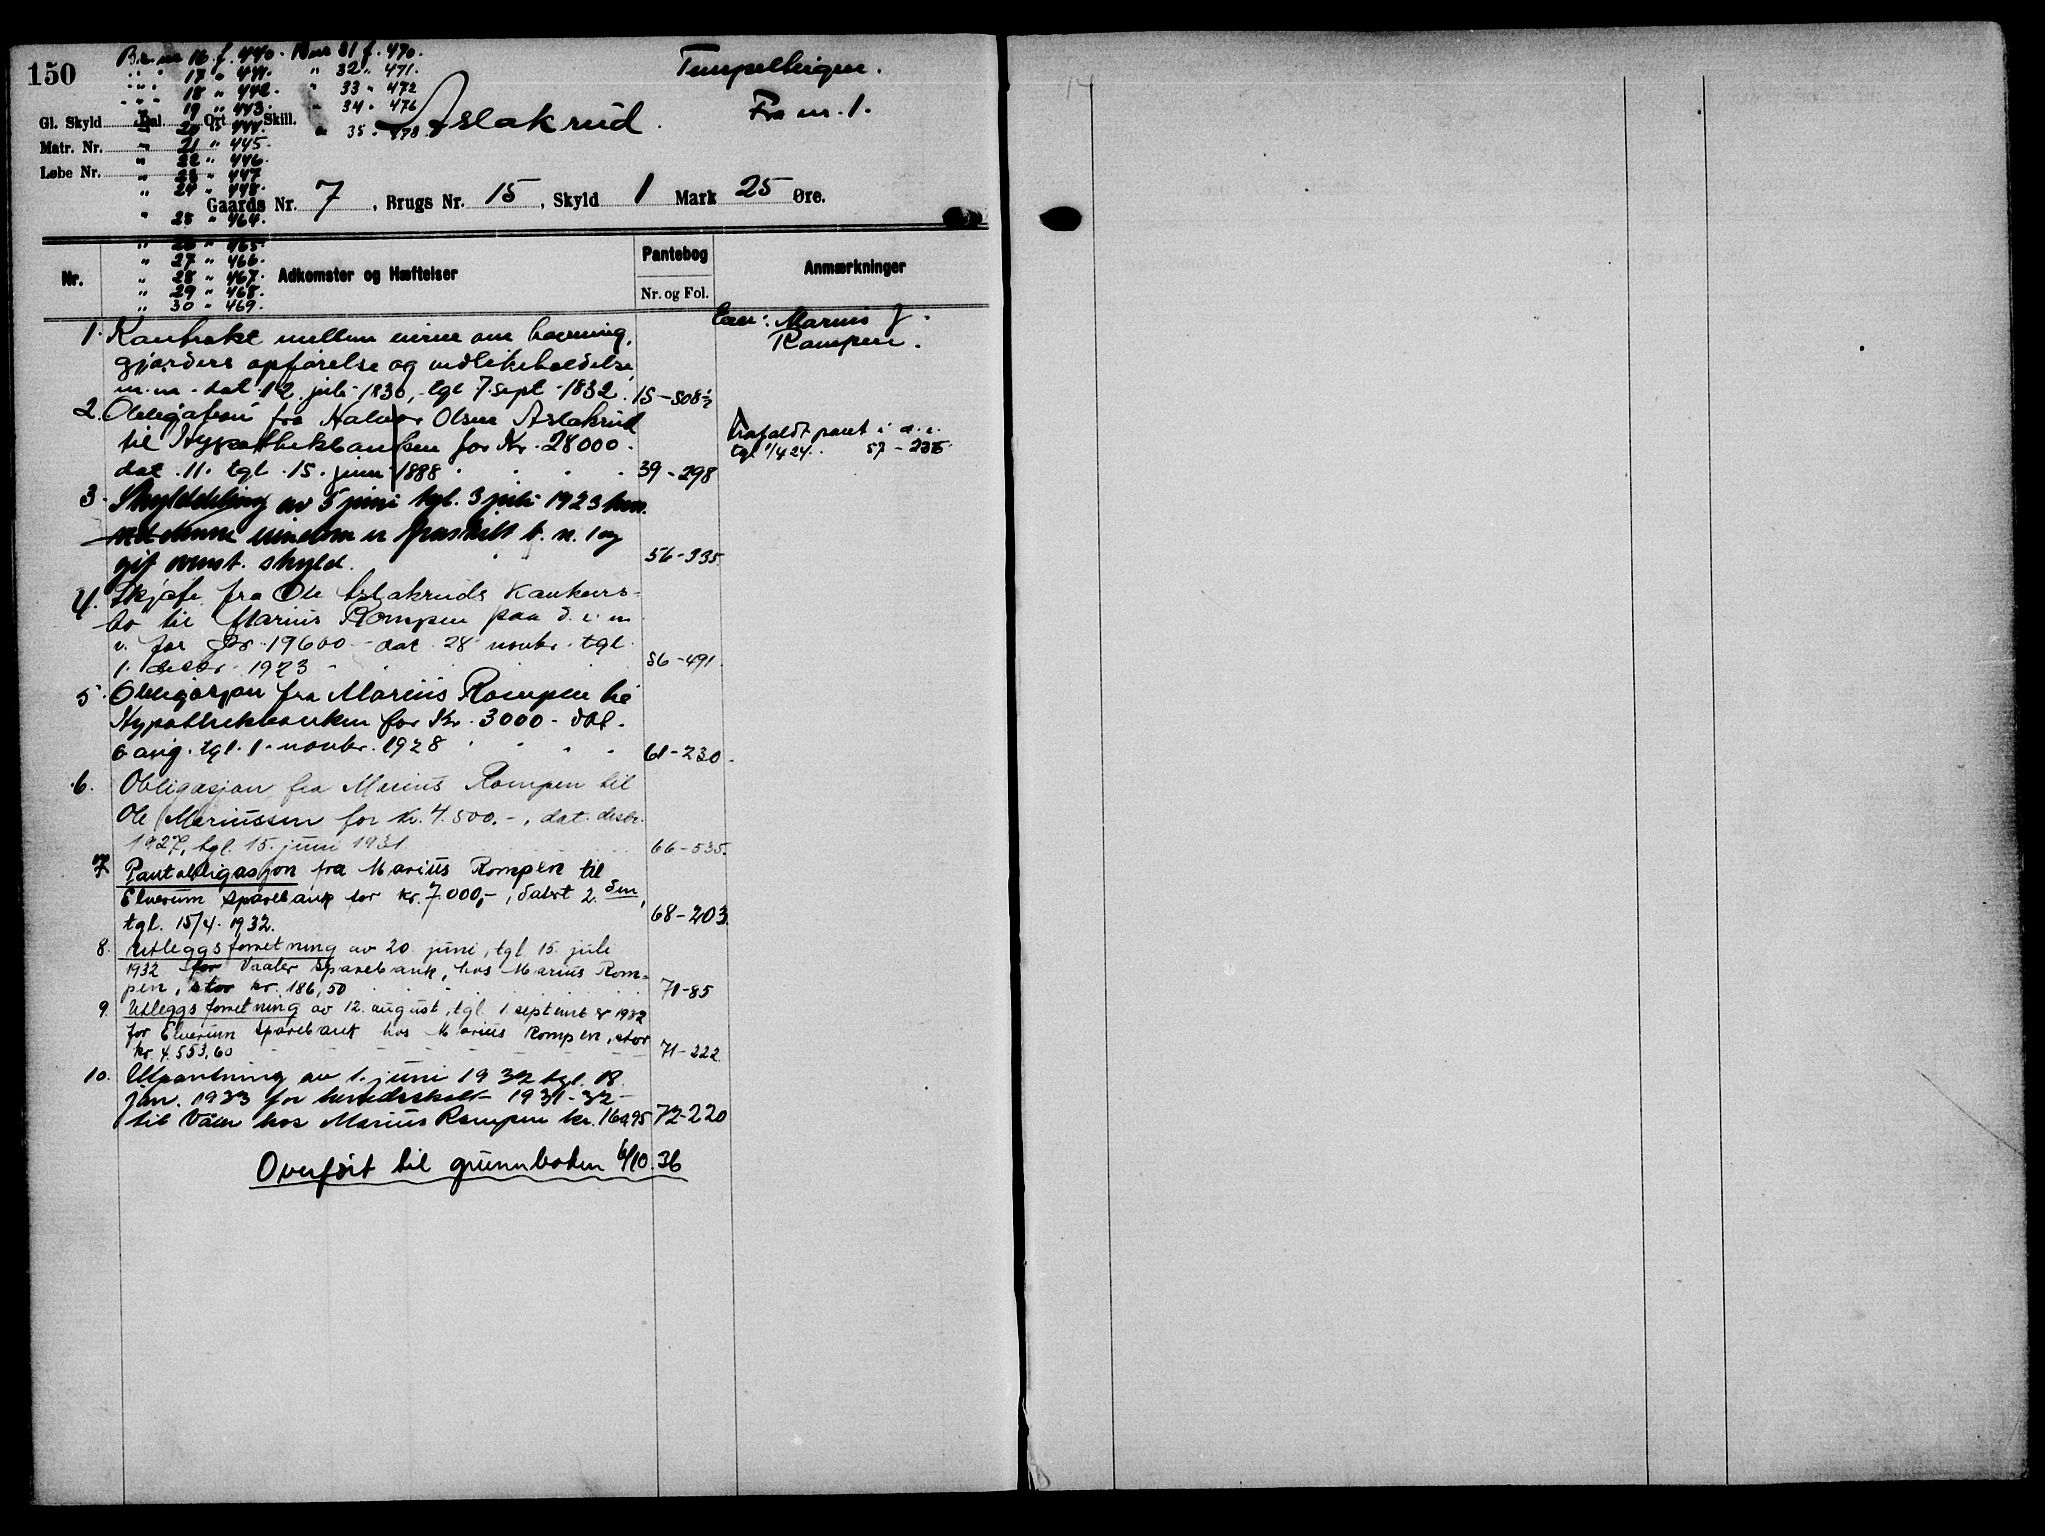 150
Br. nr 16 f. 440. Bnr 31 f. 470.
" " 17 " 441. " 32 " 471.
" " 18 " 442. " 33 " 472
" " 19 " 443. " 34 " 476
" 20 " 444. " 35 " 478
" 21 " 445.
" 22 " 446.
" 23 " 447
" 24 " 448.
" 25 " 464.
" 26 " 465.
" 27 " 466.
" 28 " 467.
" 29 " 468.
" 30 " 469.
Tempelhigen.
Fra nr. 1.
Aslakrud.
Gl. Skyld Dal. Ort Skill.
Matr. Nr.
Løbe Nr.
Gaards Nr. 7, Brugs Nr. 15, Skyld 1 Mark 25 Øre.
Nr. Adkomster og Hæftelser Pantebog Anmærkninger
Nr. og Fol.
Eier: Marius J.
Rompen.
1. Kontrakt mellem eierne om havning,
gjærders opførelse og vedlikeholdelse
m.m. dat. 12 juli 1830, tgl 7 sept 1832. 15-508½
2. Obligation fra Halvor Olsen Aslakrud
til Hypothekbanken for Kr. 28000.
dat. 11. tgl. 15. juni 1888 39-298
frafaldt pant i d. e.
tgl 1/4 24. 57-236.
3. Skylddeling av 5 juni tgl. 3 juli 1923 hvor
ved denne eiendom er fraskilt b. n. 1 og
git ovenst. skyld. 56-335.
4. Skjøte fra Ole Aslakruds Konkurs-
bo til Marius Rompen paa d. e. m
v. for Kr. 19600 - dat. 28 novbr. tgl.
1. desbr. 1923 56-491.
5. Obligasjon fra Marius Rompen til
Hypothekbanken for Kr. 3000 - dat.
6 aug. tgl. 1. novbr. 1928 61-230.
6. Obligasjon fra Marius Rompen til
Ole Mariussen for kr. 4.500.-, dat. desbr.
1927, tgl. 15. juni 1931 66-535.
7 Pantobligasjon fra Marius Rompen til
Elverum Sparebank for kr. 7.000,-, datert 2. ds.,
tgl. 15/4. 1932. 68-203.
8. Utleggsforretning av 20. juni, tgl 15. juli
1932 for Vaaler Sparebank, hos Marius Rom-
pen, stor kr. 186,50 71-85
9. Utleggsforretning av 12. august, tgl. 1. september 1932
for Elverum Sparebank hos Marius Rompen, stor
kr. 4.553,60 71-222.
10. Utpantning av 1. juni 1932 tgl. 18.
jan. 1933 for herredsskatt 1931-32
til Våler hos Marius Rompen kr. 160,95 72-220
Overført til grunnboken 6/10.36